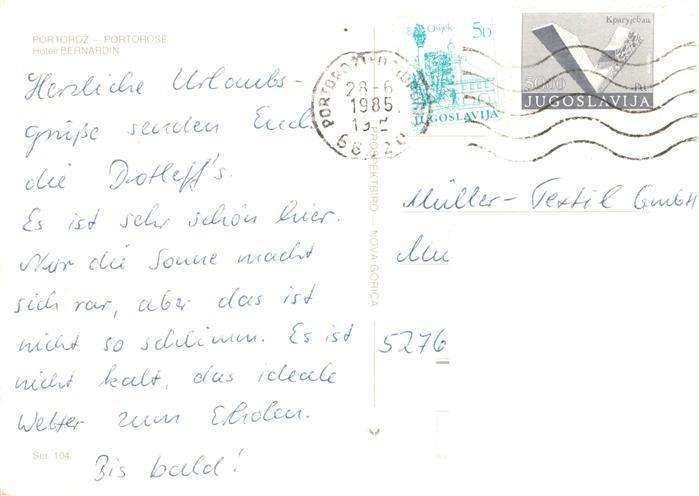 PORTOROŽ — PORTOROSE
Hoteli BERNARDIN
Herzliche Urlaubs-
grüße senden Euch
die Dotleff's.
Es ist sehr schön hier.
Nur die Sonne macht
sich rar, aber das ist
nicht so schlimm. Es ist
nicht kalt, das ideale
Wetter zum Erholen.
Bis bald!
Ser. 104
PROSPEKTBIRO — NOVA GORICA
28-6
1985
Osijek
5D
JUGOSLAVIJA
Крагујевац
JUGOSLAVIJA
Müller-Textil GmbH
5276